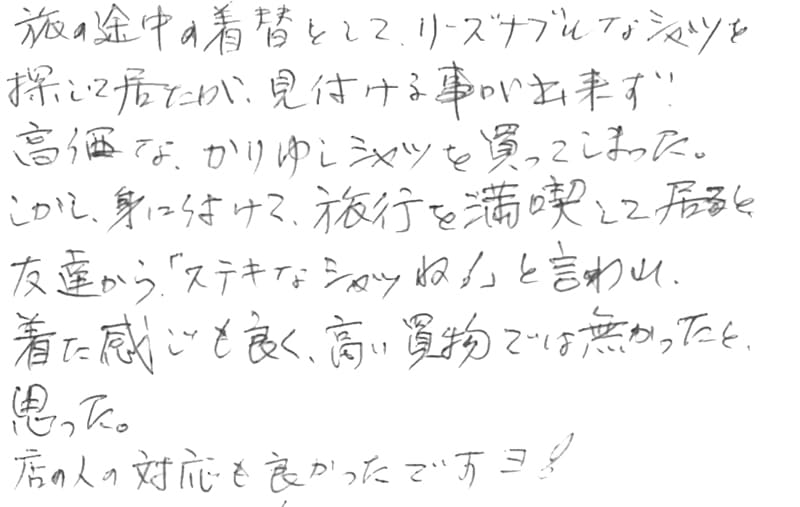 旅の途中の着替として、リーズナブルなシャツを
探して居たが、見付ける事が出来ず!
高価な、かりゆしシャツを買ってしまった。
しかし、身に付けて、旅行を満喫して居ると、
友達から、「ステキなシャツね!」と言われ、
着た感じも良く、高い買物では無かったと、
思った。
店の人の対応も良かったですヨ!